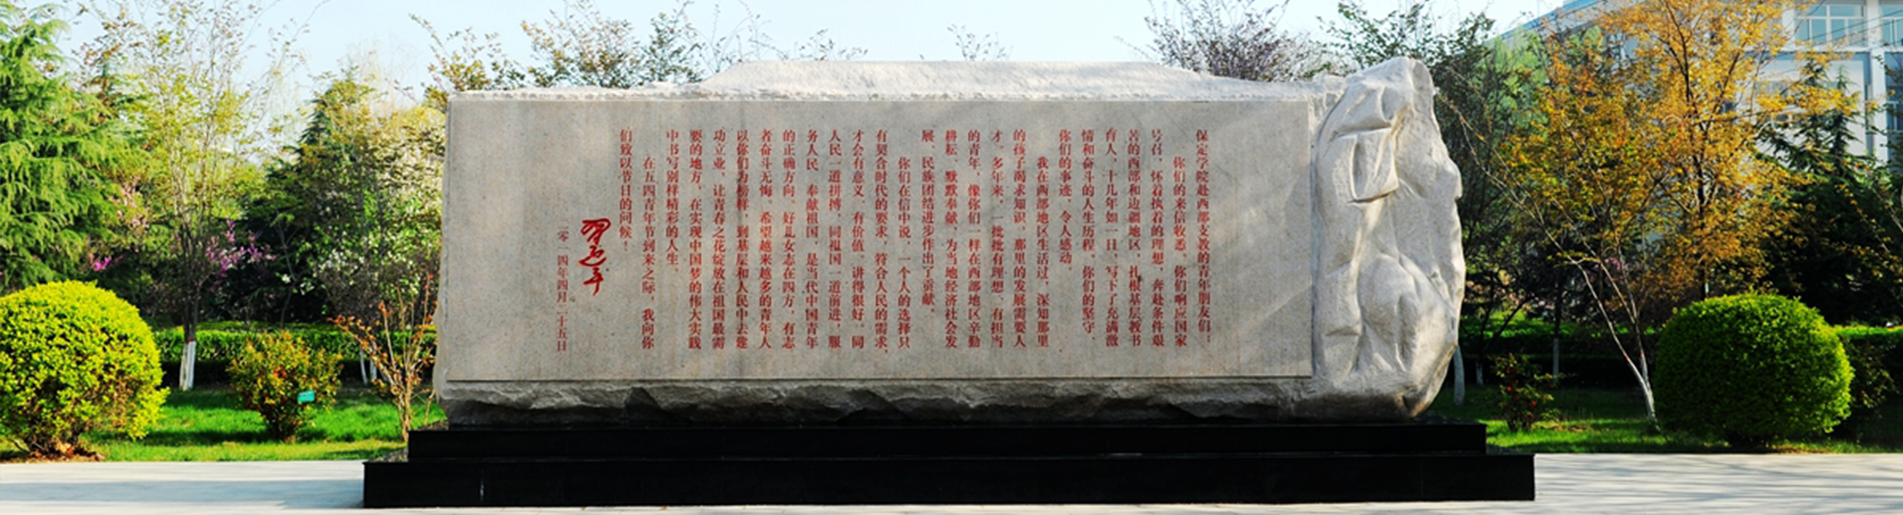 保定学院赴西部支教的青年朋友们：
你们的来信收悉。你们响应国家
号召，怀着执着的理想，奔赴条件艰
苦的西部和边疆地区，扎根基层教书
育人，十几年如一日，写下了充满激
情和奋斗的人生历程。你们的坚守、
你们的事迹，令人感动。
我在西部地区生活过，深知那里
的孩子渴求知识，那里的发展需要人
才。多年来，一批批有理想、有担当
的青年，像你们一样在西部地区辛勤
耕耘、默默奉献，为当地经济社会发
展、民族团结进步作出了贡献。
你们在信中说，一个人的选择只
有契合时代的要求，符合人民的需求，
才会有意义、有价值，讲得很好。同
人民一道拼搏、同祖国一道前进，服
务人民、奉献祖国，是当代中国青年
的正确方向。好儿女志在四方，有志
者奋斗无悔。希望越来越多的青年人
以你们为榜样，到基层和人民中去建
功立业，让青春之花绽放在祖国最需
要的地方，在实现中国梦的伟大实践
中书写别样精彩的人生。
在五四青年节到来之际，我向你
们致以节日的问候！
习近平
二零一四年四月二十五日